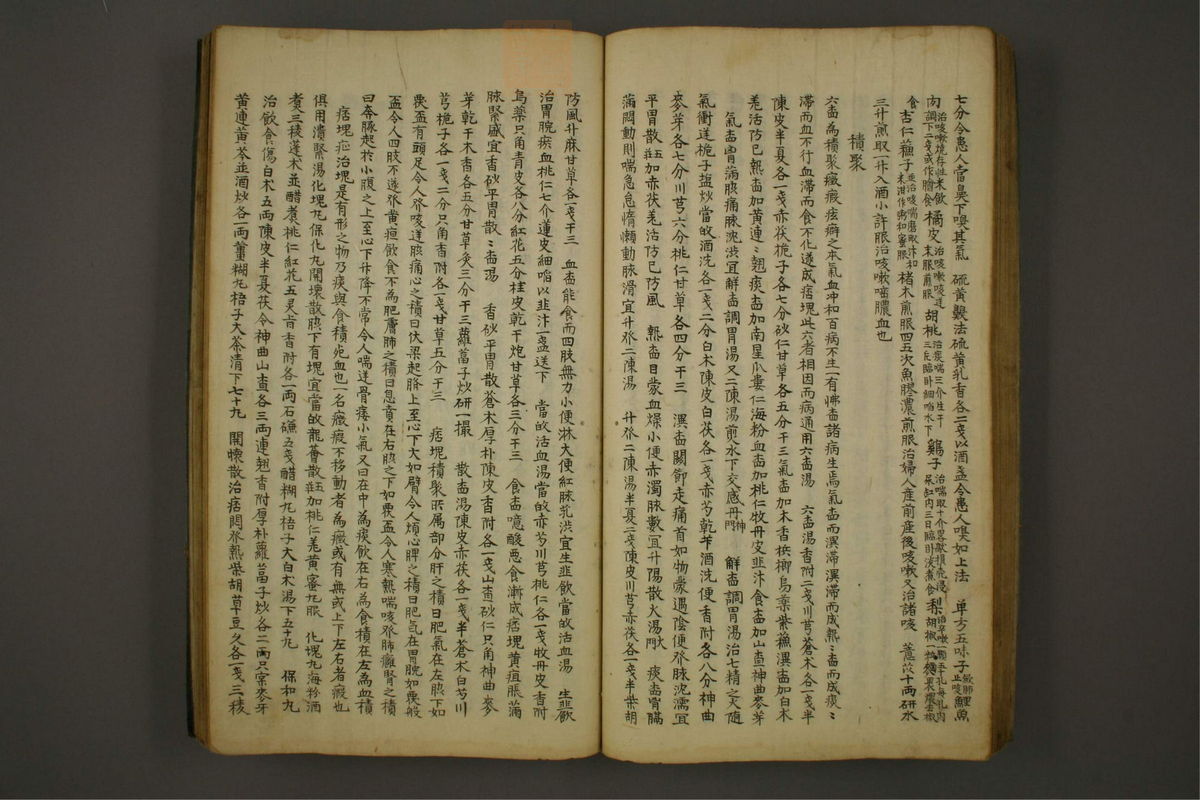 七分令患人當鼻下嗅其氣 硫黃製法硫黃乳香各二戔以酒盞令患人嗅如上法 單方五味子 斂肺止咳 鯉魚
肉 治咳嗽燒存性米飮調下二戔或作膾食 橘皮 治咳嗽咳逆末服煎服 胡桃 治痰喘三介生干三片臨卧細嚼水下 鷄子 梨
食 杏仁蘇子 楮木煎服四五次魚膠濃煎服治婦人産前産後咳嗽又治諸咳 薏苡十兩研水
三升煎取一升入酒小許服治咳嗽唾膿血也
積聚
六欝為積聚癥瘕痃癖之本氣血冲和百病不生一有怫欝諸病生焉氣欝而濕滯濕滯而成熱〻欝而成痰〻
滯而血不行血滯而食不化遂成痞塊此六者相因而病通用六欝湯 六欝湯香附二戔川芎蒼木各一戔半
陳皮半夏各一戔赤茯梔子各七分砂仁甘草各五分干三氣欝加木香梹榔烏藥紫蘇濕欝加白木
羗活防已熱欝加黃連〻翹痰欝加南星爪蔞仁海粉血欝加桃仁牧丹皮韭汁食欝加山査神曲麥芽
氣欝胷滿脇痛脉沈澁宜解欝調胃湯又二陳湯煎水下交感丹神門 解欝調胃湯治七精之火隨
氣衝逆梔子塩炒當𢻯酒洗各一戔二分白木陳皮白茯各一戔赤芍乾芐酒洗便香附各八分神曲
麥芽各七分川芎六分桃仁甘草各四分干三 濕欝関節走痛首如物蒙遇陰便發脉沈濡宜
平胃散五莊加赤茯羗活防已防風 熱欝目蒙血燥小便赤濁脉數宜升陽散火湯門火 痰欝胷膈
滿悶動則喘急怠惰懶動脉滑宜升發二陳湯 升發二陳湯半夏二戔陳皮川芎赤茯各一戔半柴胡
防風升麻甘草各一戔干三 血欝能食而四肢無力小便淋大便紅脉芤澁宜生韭飮當𢻯活血湯 生韭飮
治胃脘瘀血桃仁七介蓮皮細嚼以韭汁一盞送下 當𢻯活血湯當𢻯赤芍川芎桃仁各一戔牧丹皮香附
烏藥只角青皮各八分紅花五分桂皮乾干炮甘草各三分干三 食欝噫酸惡食漸成痞塊黃疸脹滿
脉緊盛宜香砂平胃散〻欝湯 香砂平胃散蒼木厚朴陳皮香附各一戔山査砂仁只角神曲麥
芽乾干木香各五分甘草灸三分干三蘿葍子炒研一撮 散欝湯陳皮赤茯各一戔半蒼木白芍川
芎梔子各一戔二分只角香附各一戔甘草五分干三 痞塊積聚所属部分肝之積曰肥氣在左脇下如
覆盃有頭足令人發咳逆脇痛心之積曰伏梁起臍上至心下大如臂令人煩心脾之積曰肥氣在胃脘如覆般
盃令人四肢不遂發黃疸飮食不為肥膚肺之積曰息賁在右脇之下如覆盃令人寒熱喘咳發肺癰腎之積
曰奔豚起於小腹之上至心下升降不常令人喘逆骨痿小氣又曰在中為痰飮在右為食積在左為血積
痞塊症治塊是有形之物乃痰與食積死血也一名癥瘕不移動者為癥或有無或上下左右者瘕也
俱用潰緊湯化塊丸保化丸開壞散脇下有塊宜當𢻯龍薈散五莊加桃仁羗黃蜜丸服 化塊丸海粉酒
煑三稜蓬朮並醋煑桃仁紅花五灵脂香附各一兩石礆五戔醋糊丸梧子大白木湯下五十丸 保和丸
治飮食傷白木五兩陳皮半夏茯令神曲山査各三兩連翹香附厚朴蘿葍子炒各二兩只宲麥芽
黃連黃芩並酒炒各一兩薑糊丸梧子大茶清下七十丸 開壞散治痞悶發熱柴胡草豆久各一戔三稜